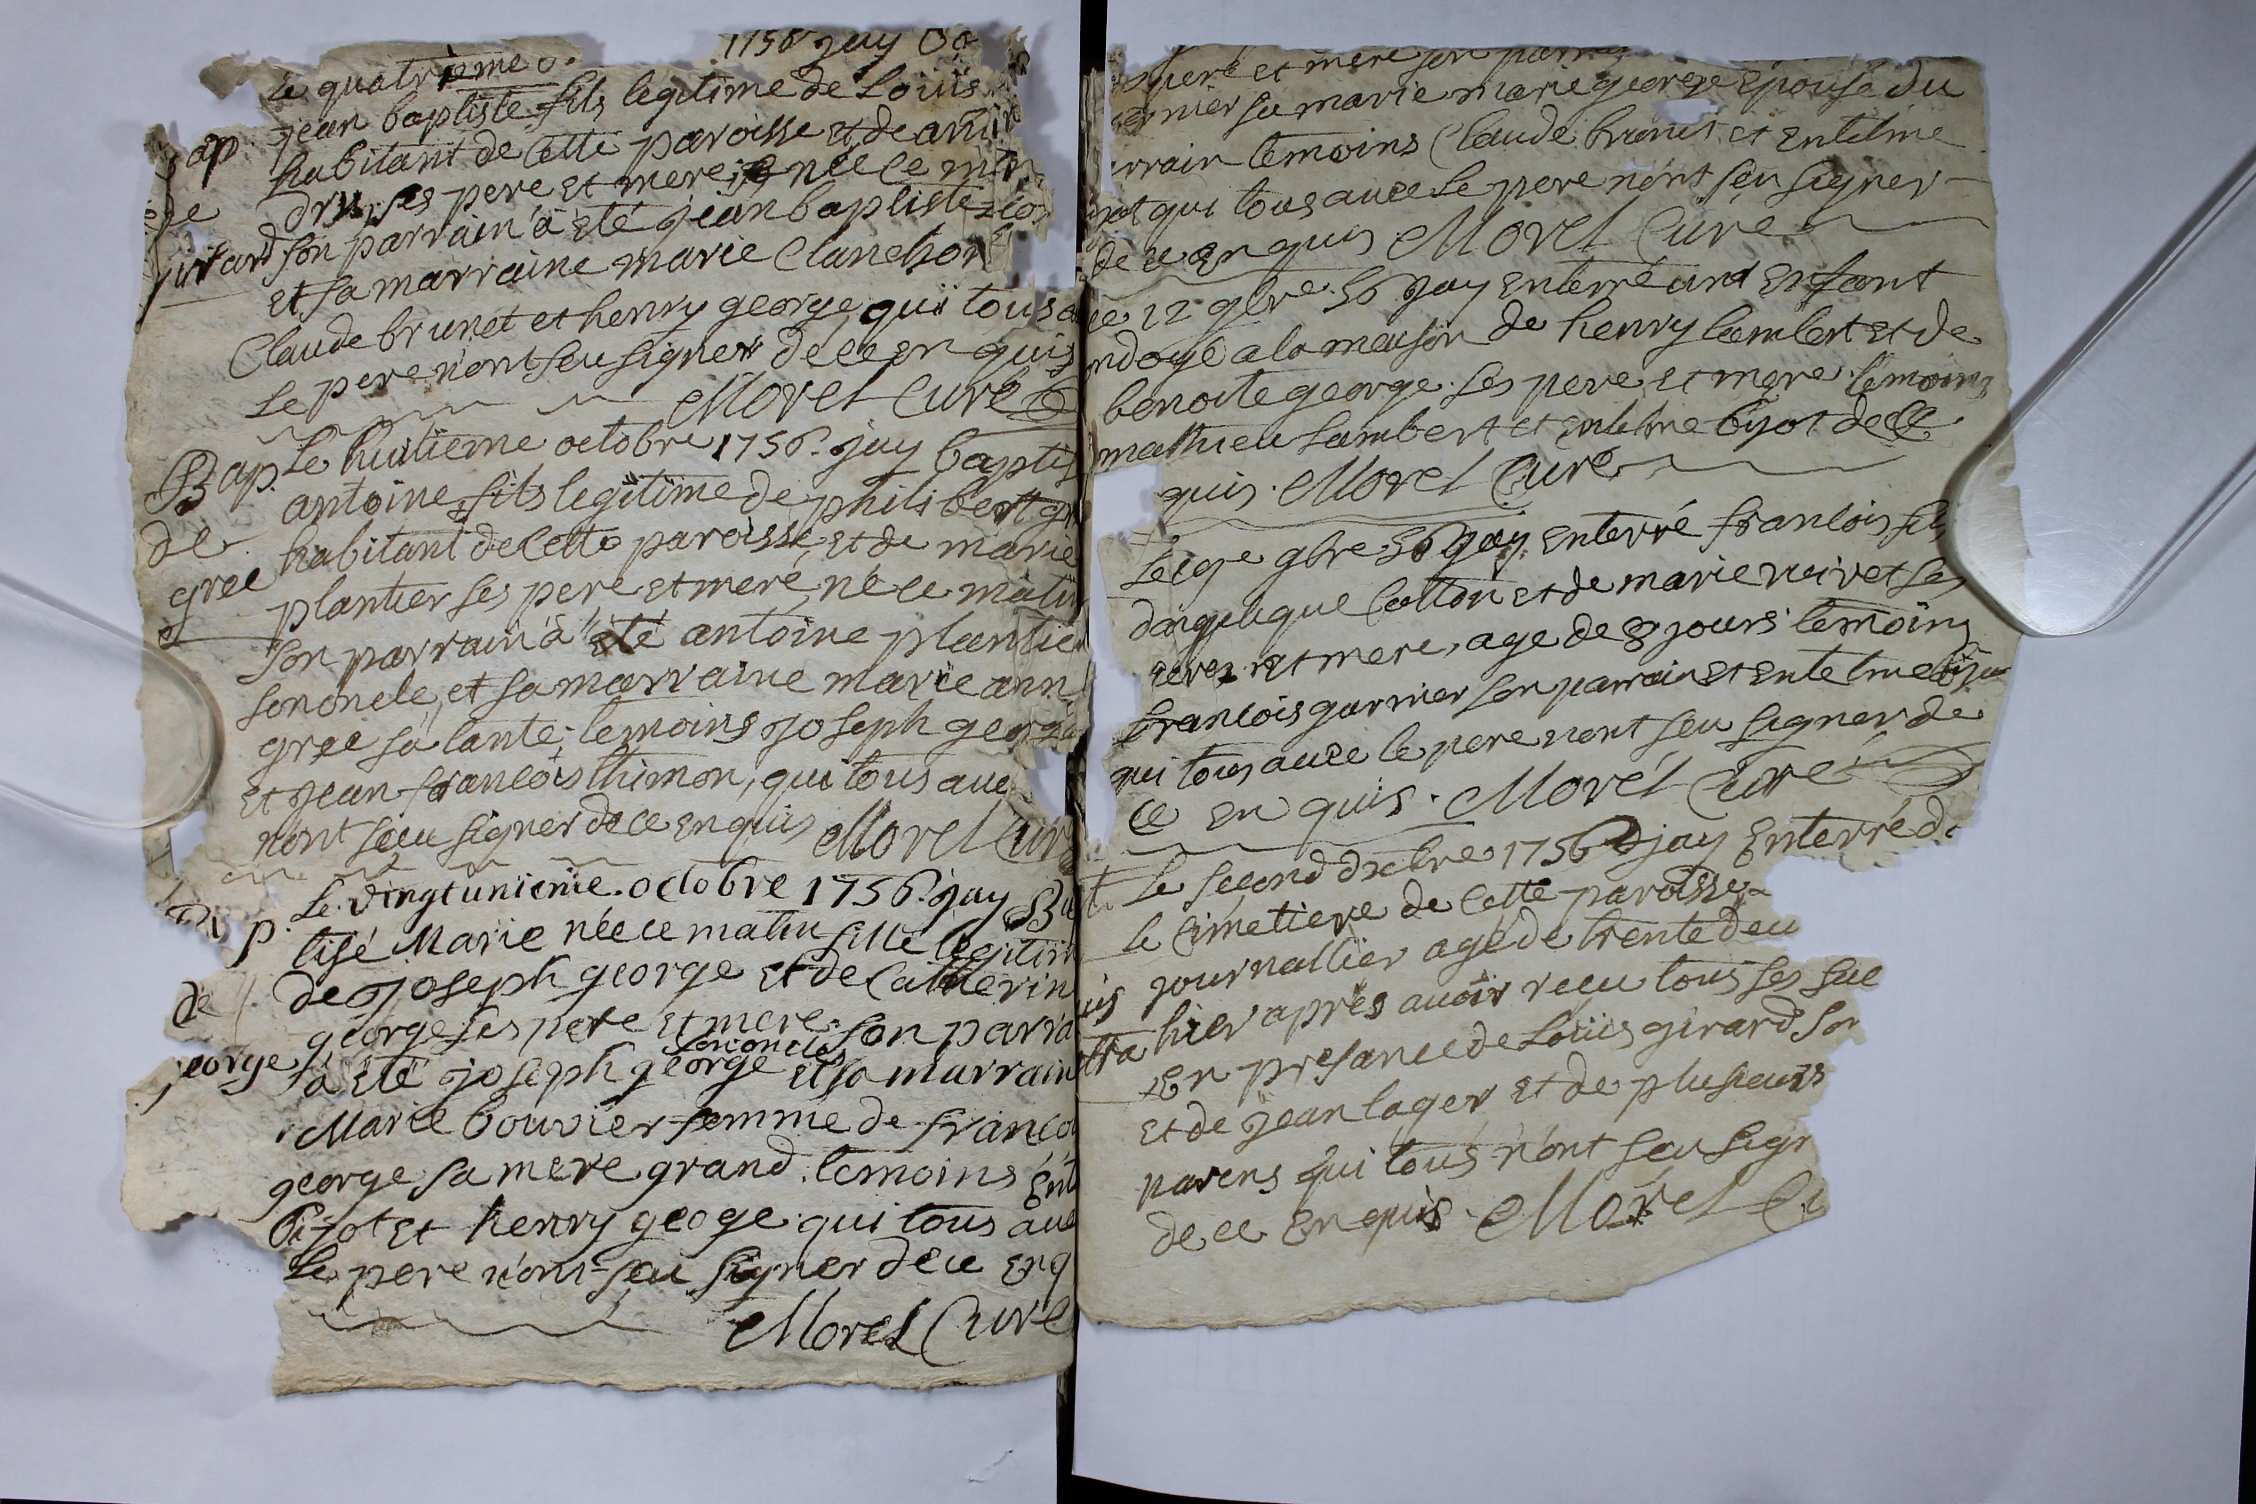 le quatrieme o 1756 jay Ba
Bap. jean baptiste fils legitime de Loüis
habitant de cette paroisse et de
de ses pere et mere née ce
girard son parrain à été jean baptiste
et sa marraine marie Clanchon
Claude brunet et henry george, qui tous a
le pere n'ont seu signer de ce en quis
Morel Curé
Bap. Le huitieme octobre 1756. jay baptis
antoine, fils legitime de philibert gr
de habitant de cette paroisse, et de marie
gree plantier ses pere et mere, né ce matin
son parrain à été antoine plantier
son oncle, et sa marraine marie ann
gree sa tante; temoins joseph george
et jean françois thimon, qui tous avec
n'ont sceu signer de ce enquis Morel Curé
B p. Le vingt unieme octobre 1756. jay Ba
tisé Marie née ce matin fille legitim
de de joseph george et de Catherin
george ses pere et mere. son parra
son oncle
george a été joseph george et sa marrain
Marie bouvier femme de franço
george sa mere grand. temoins Ent
bijot et henry geoge qui tous ave
le pere n'ont seu signer de ce enq
Morel Curé
pere et mere son parr
sa marie marie george epouse du
rrain temoins Claude brunet et entelme
qui tous avec le pere n'ont seu signer
de ce enquis Morel Curé
le 12 9bre. 56 jay enterré und enfant
ndoyé a la maison de henry lambert et de
benoite george ses pere et mere. temoins
mathieu lambert et entelme bijot de ce
quis. Morel Curé
Le 9bre. 56 jay enterré francois fils
dangelique Cotton et de marie ses
peres et mere, age de 8 jours temoins
francois garnier son parrain et entelme bijo
qui tous avec le pere n'ont seu signer de
ce en quis. Morel Curé
Le second dxbre 1756 jay Enterré d
le Cimetiere de cette paroisse
journallier agé de trente deu
hier apres avoir recu tous ses sac
En presance de Loüis girard son
et de jean lager et de plusieurs
parens qui tous n'ont seu sign
de ce enquis. Morel Cu